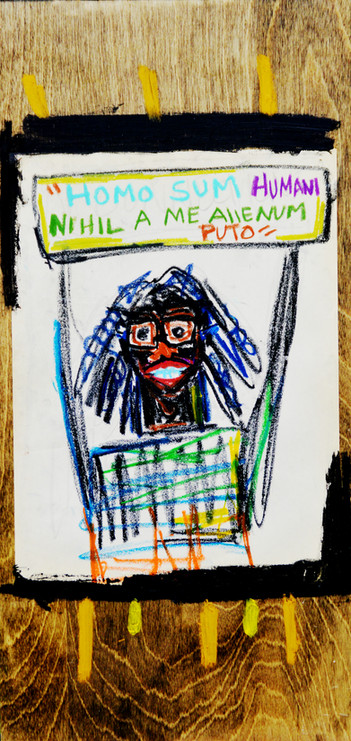 "HOMO SUM HUMANI
NIHIL A ME AlIENUM
PUTO"